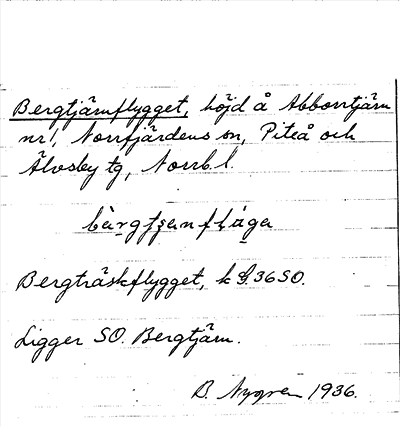 Bergtjärnflygget, höjd å Abborrtjärn
nr 1, Norrfjärdens sn, Piteå och
Älvsby tg, Norrb. l.
Bergträskflygget, k 36SO.
Ligger SO. Bergtjärn.
B. Nygren 1936.